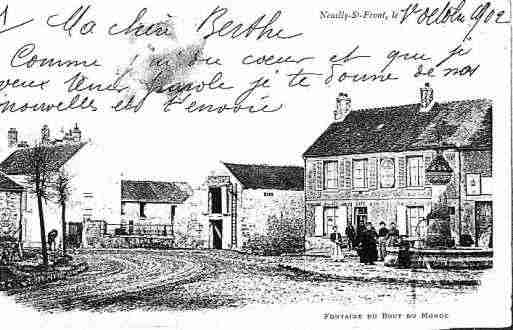 Neuilly-St-Front, le V octobre 1902
Ma chère Berthe
Comme j'ai du cœur et que je
veux tenir parole je te donne de nos
nouvelles et t'envoie
FONTAINE DU BOUT DU MONDE